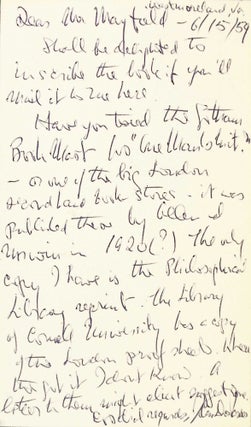 Westmoreland, Va.
Dear Mr Mayfield – 6/15/59
Shall be delighted to
inscribe the book if you'll
mail it to me here
Have you tried the Gotham
Book Mart for "One Man's Initiation"
– or one of the big London
second hand book stores – it was
published there by Allen &
Unwin in 1920 (?) The only
copy I have is the Philosophical
Library reprint. The Library
of Cornell University has a copy
of the London proof sheets. Where
they put it I dont know. A
letter to them might elicit suggestions.
Cordial regards,